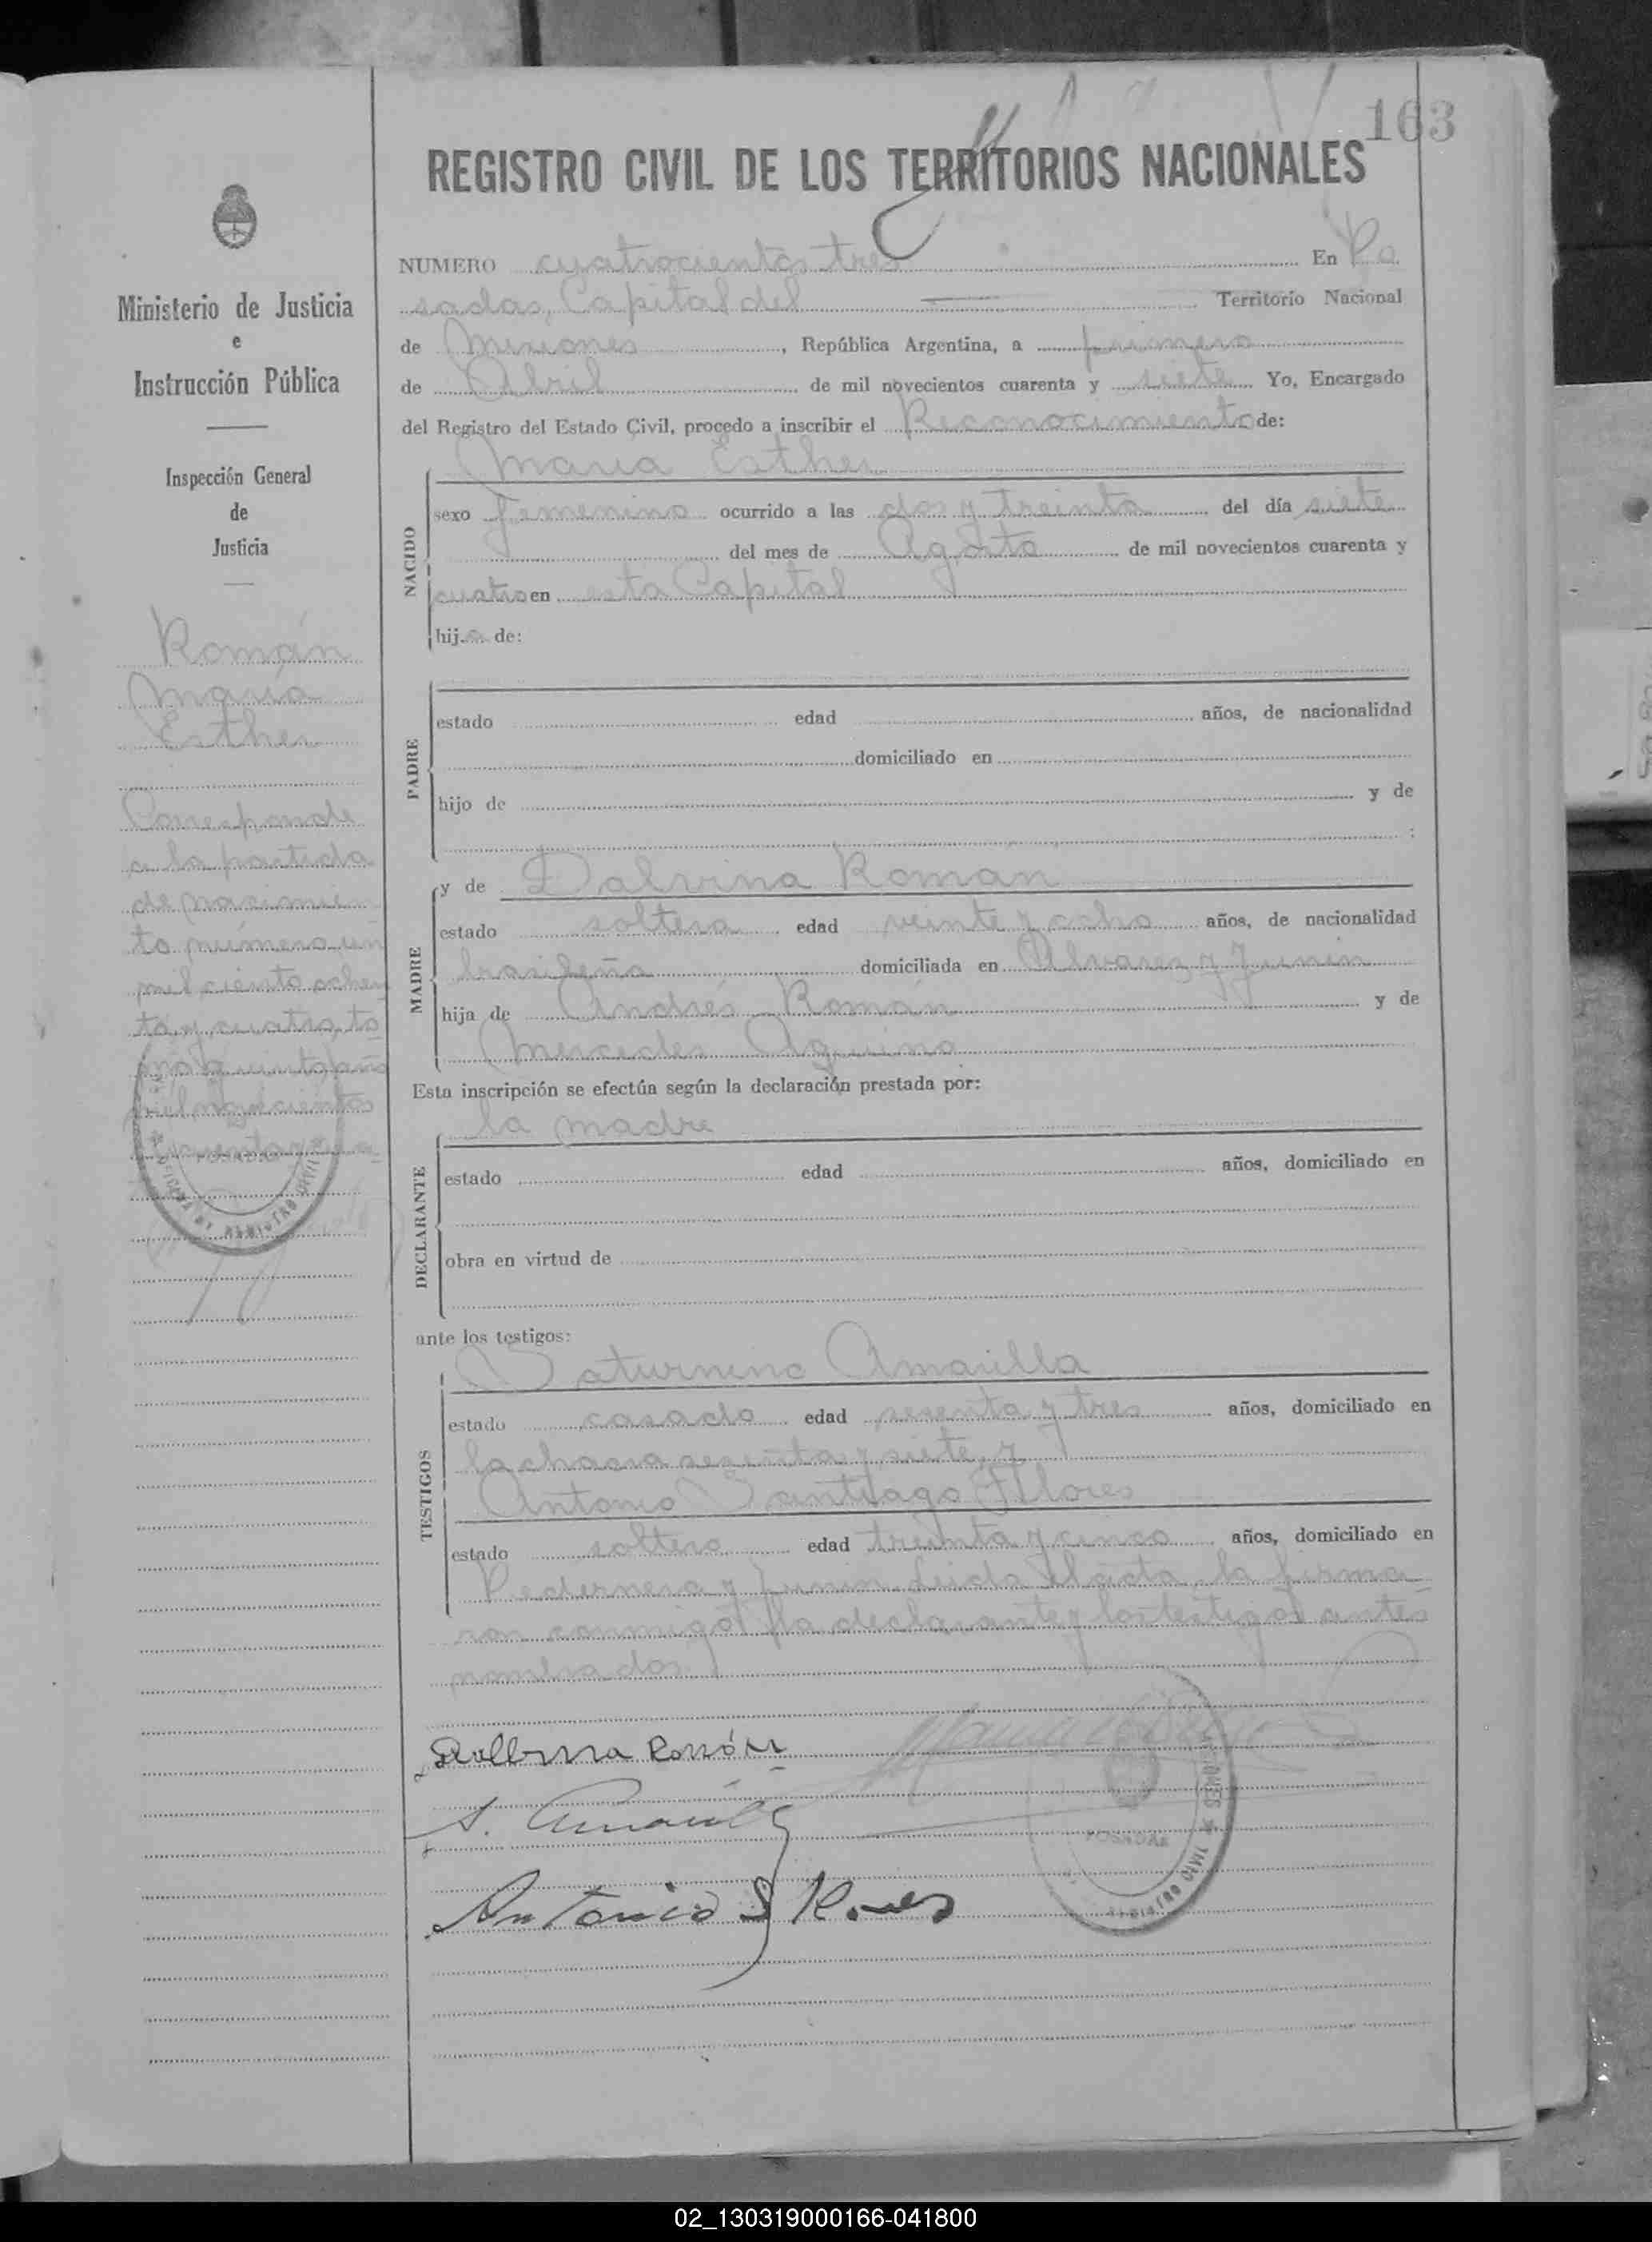 163
REGISTRO CIVIL DE LOS TERRITORIOS NACIONALES
Ministerio de Justicia
e
Instrucción Pública
Inspección General
de
Justicia
Román
María
Esther
Corresponde
a la partida
de nacimien
to número un
mil ciento ochen
ta y cuatro, to
mo quinto, año
mil novecientos
cuarenta y
NUMERO cuatrocientos tres En Po
sadas, Capital del Territorio Nacional
de Misiones, República Argentina, a primero
de Abril de mil novecientos cuarenta y siete Yo, Encargado
del Registro del Estado Civil, procedo a inscribir el Reconocimiento de:
NACIDO
María Esther
sexo femenino ocurrido a las dos y treinta del día siete
del mes de Agosto de mil novecientos cuarenta y
cuatro en esta Capital
hija de:
PADRE
estado edad años, de nacionalidad
domiciliado en
hijo de y de
:
MADRE
y de Dalvina Roman
estado soltera edad veinte y ocho años, de nacionalidad
brasileña domiciliada en Alvarez y Junin
hija de Andrés Román y de
Mercedes Aquino
Esta inscripción se efectúa según la declaración prestada por:
DECLARANTE
la madre
estado edad años, domiciliado en
obra en virtud de
ante los testigos:
TESTIGOS
Saturnino Amarilla
estado casado edad sesenta y tres años, domiciliado en
la chacra sesenta y siete, y
Antonio Santiago Flores
estado soltero edad treinta y cinco años, domiciliado en
Pedernera y Junin. Leida el acta, la firma
ron conmigo la declarante y los testigos antes
nombrados.
Román
S. Amarilla
Antonio S
POSADAS
REGISTRO CIVIL
02_130319000166-041800